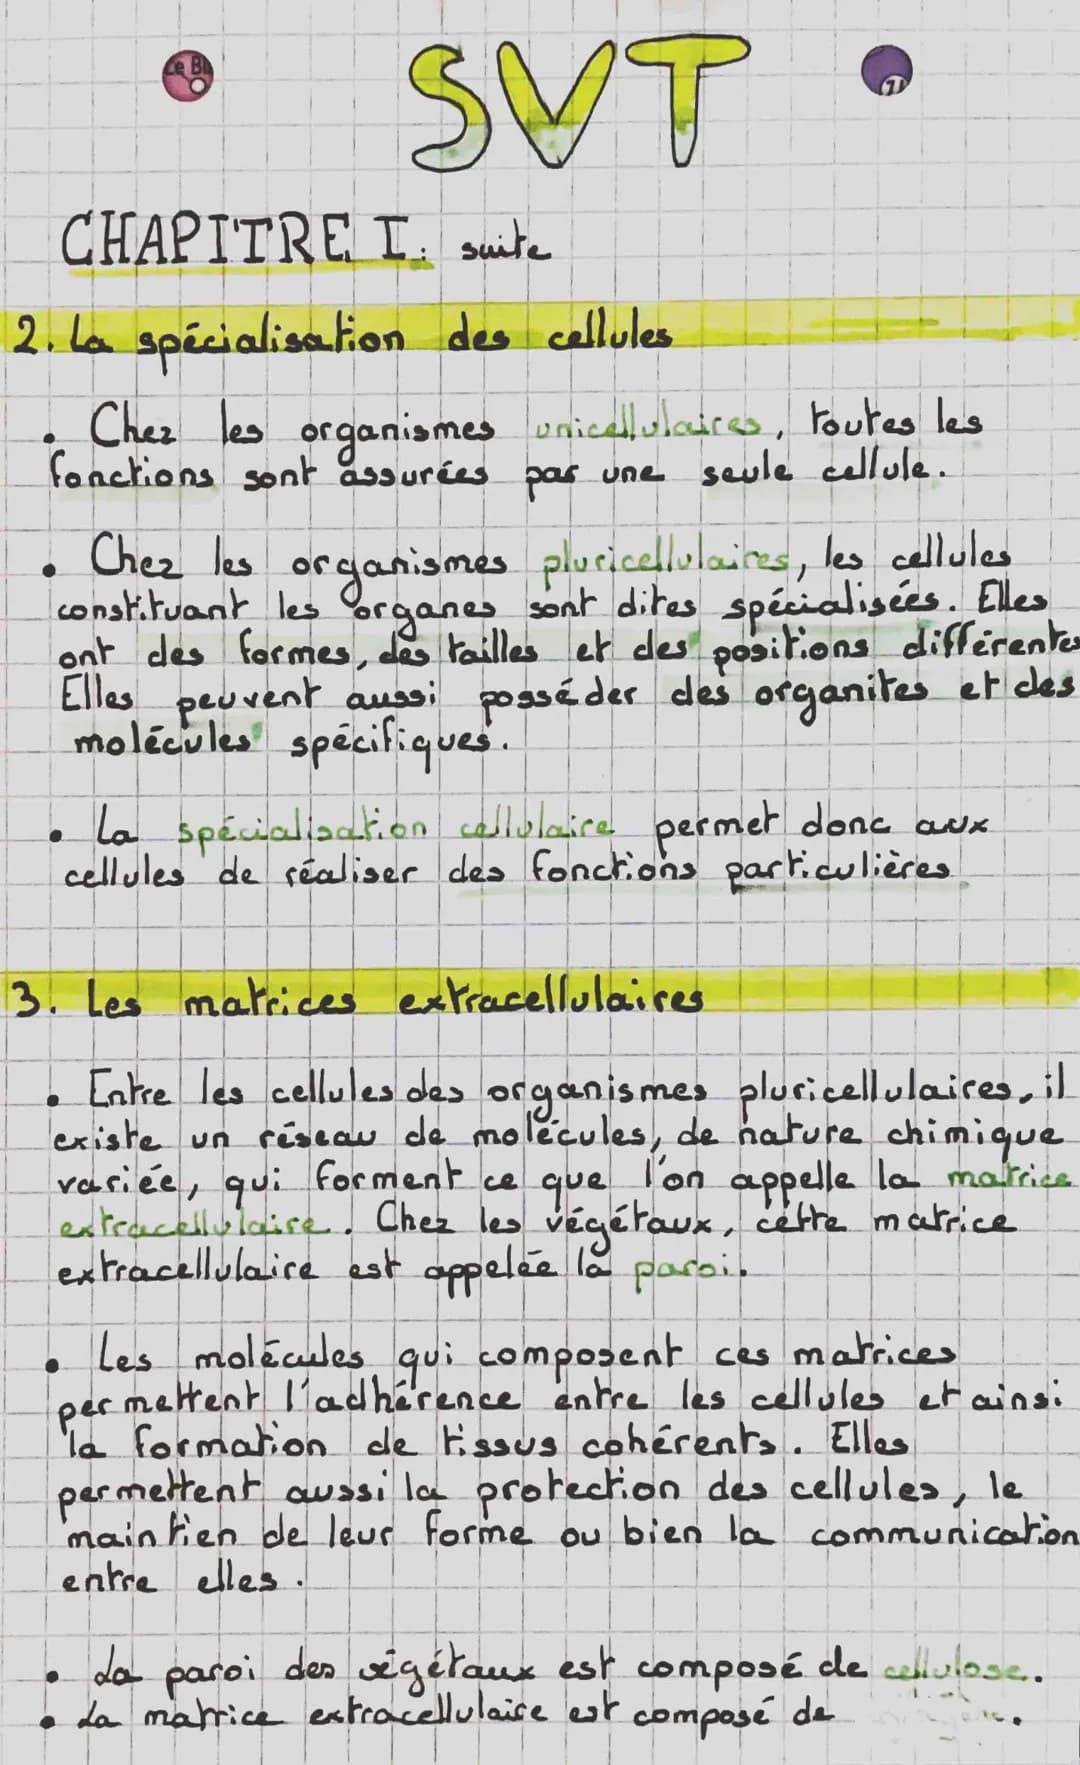 Le Bl
SVT
CHAPITRE I. suite
2. La spécialisation des cellules
• Chez les organismes unicellulaires, toutes les
fonctions sont assurées par une seule cellule.
• Chez les organismes pluricellulaires, les cellules
constituant les organes sont dites spécialisées. Elles
ont des formes, des tailles et des positions différentes
Elles peuvent aussi posséder des organites et des
molécules spécifiques.
• La spécialisation cellulaire permet donc aux
cellules de réaliser des fonctions particulières
3. Les matrices extracellulaires
• Entre les cellules des organismes pluricellulaires, il
existe un réseau de molécules, de nature chimique
variée, qui forment ce que l'on appelle la matrice
extracellulaire. Chez les végétaux, cette matrice
extracellulaire est appelée la paroi.
• Les molécules qui composent ces matrices
permettent l'adhérence entre les cellules et ainsi
la formation de tissus cohérents. Elles
permettent aussi la protection des cellules, le
maintien de leur forme ou bien la communication
entre elles.
• La paroi des végétaux est composé de cellulose.
• La matrice extracellulaire est composé de